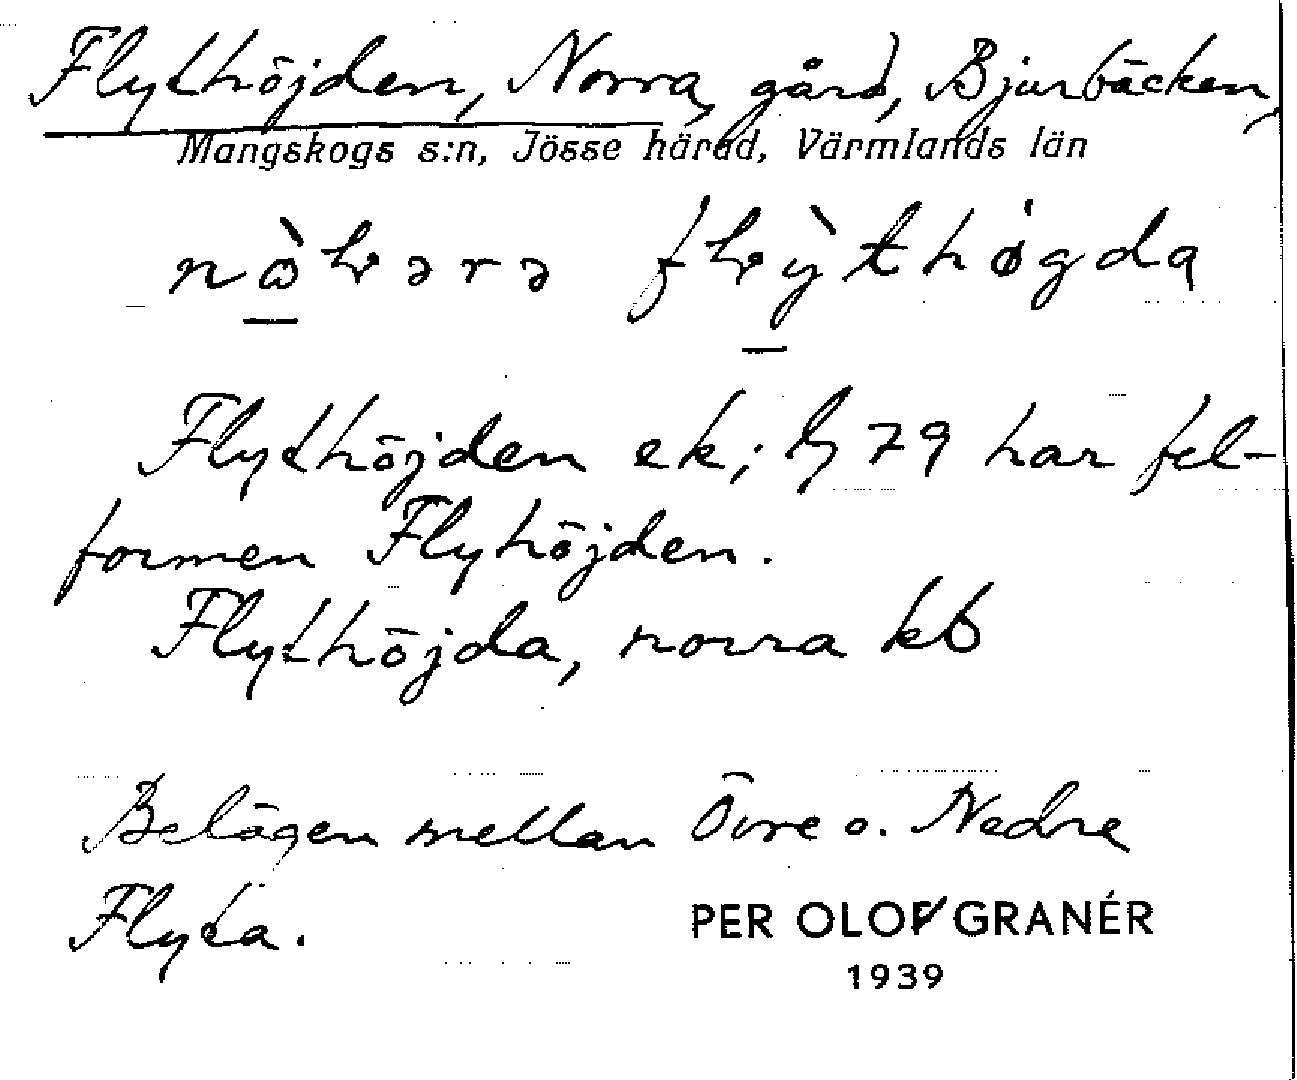 Flythöjden, Norra, gård, Bjurbäcken,
Mangskogs s:n, Jösse härad, Värmlands län
Flythöjden ek; 79 har fel-
formen Flyhöjden.
Flythöjda, norra kb
Belägen mellan Övre o. Nedre
Flyta.
PER OLOF GRANÉR
1939